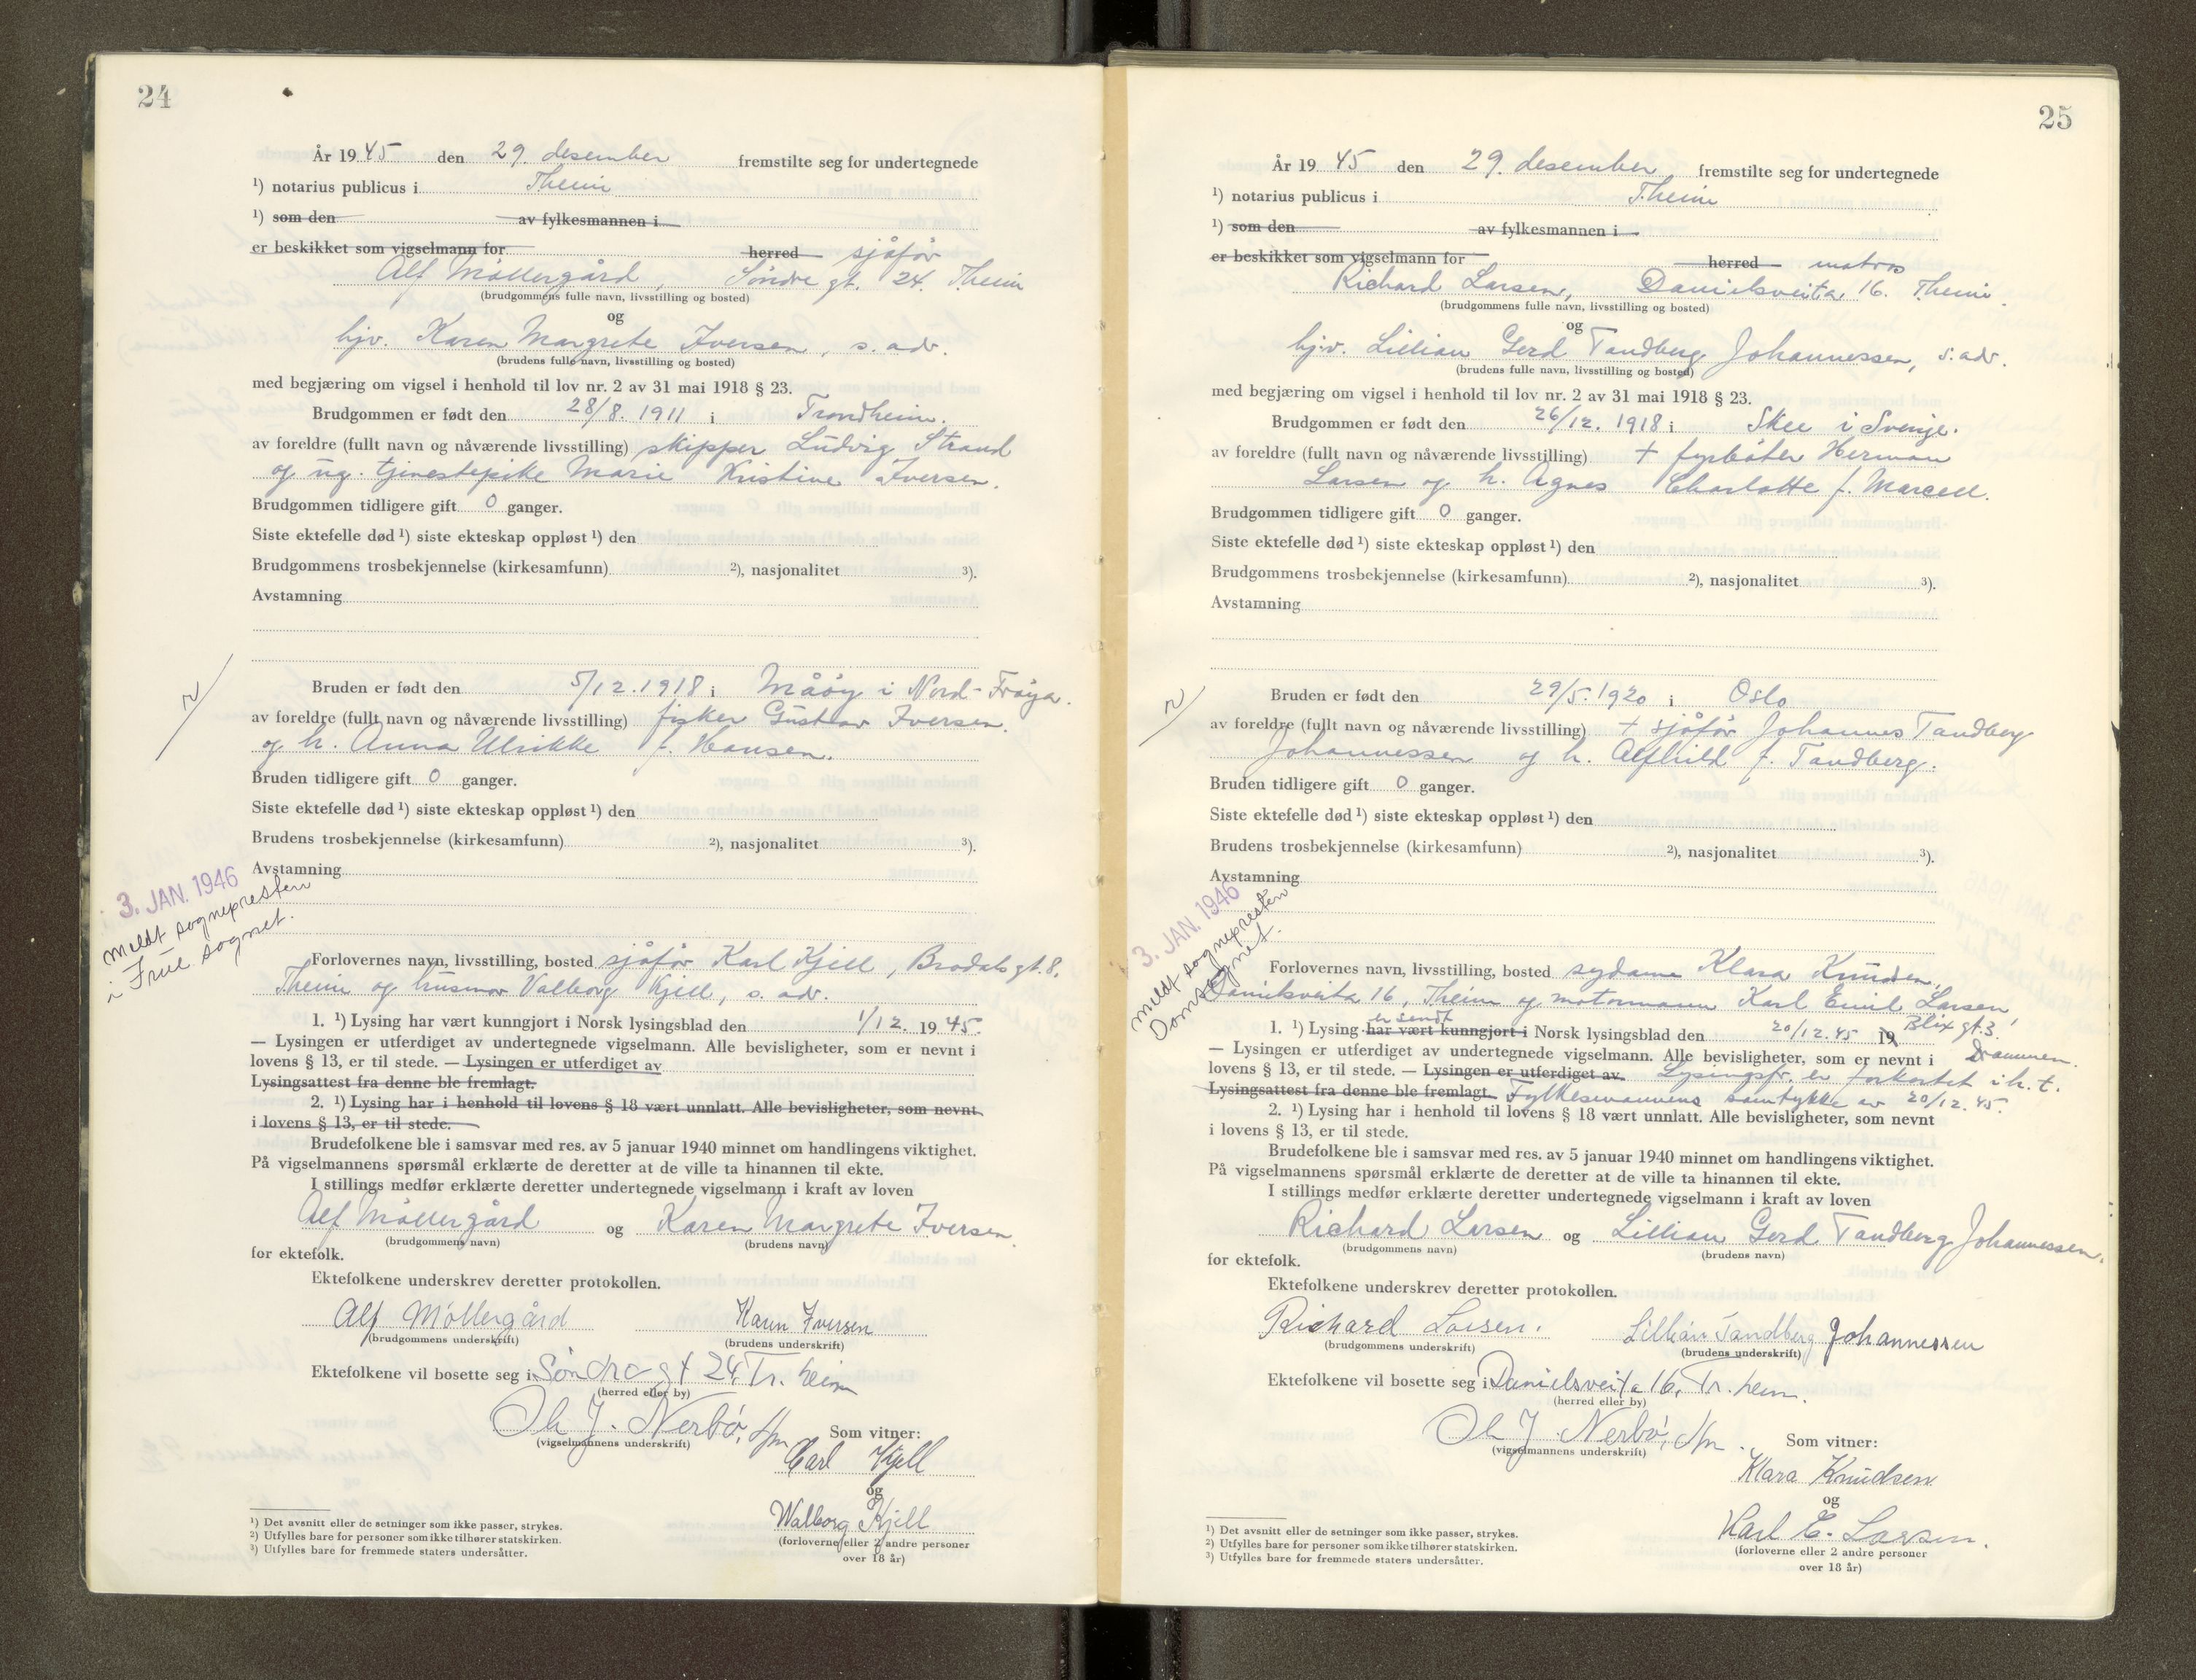 24
År 1945 den 29. desember fremstilte seg for undertegnede
¹) notarius publicus i Theim
¹) som den av fylkesmannen i
er beskikket som vigselmann for herred sjåfør
Alf Möllergård, Söndre gt. 24. Theim
(brudgommens fulle navn, livsstilling og bosted)
og
hjv. Karen Margrete Iversen, s. adr.
(brudens fulle navn, livsstilling og bosted)
med begjæring om vigsel i henhold til lov nr. 2 av 31 mai 1918 § 23.
Brudgommen er født den 28/8. 1911 i Trondheim.
av foreldre (fullt navn og nåværende livsstilling) skipper Ludvig Strand
og ug. tjenestepike Marie Kristine Iversen.
Brudgommen tidligere gift 0 ganger.
Siste ektefelle død ¹) siste ekteskap oppløst ¹) den
Brudgommens trosbekjennelse (kirkesamfunn) ²), nasjonalitet ³).
Avstamning
Bruden er født den 5/12.1918 i Måöy i Nord-Fröya.
av foreldre (fullt navn og nåværende livsstilling) fisker Gustav Iversen
og h. Anna Ulrikke f. Hansen.
Bruden tidligere gift 0 ganger.
Siste ektefelle død ¹) siste ekteskap oppløst ¹) den
Brudens trosbekjennelse (kirkesamfunn) ²), nasjonalitet ³).
Avstamning
3. JAN. 1946
Meldt sognepresten
i Frue sognet.
Forlovernes navn, livsstilling, bosted sjåför Karl Kjell, Brodals gt. 8.
Theim og husmor Valborg Kjell, s. adr.
1. ¹) Lysing har vært kunngjort i Norsk lysingsblad den 1/12. 1945.
— Lysingen er utferdiget av undertegnede vigselmann. Alle bevisligheter, som er nevnt i
lovens § 13, er til stede. — Lysingen er utferdiget av
Lysingsattest fra denne ble fremlagt.
2. ¹) Lysing har i henhold til lovens § 18 vært unnlatt. Alle bevisligheter, som nevnt
i lovens § 13, er til stede.
Brudefolkene ble i samsvar med res. av 5 januar 1940 minnet om handlingens viktighet.
På vigselmannens spørsmål erklærte de deretter at de ville ta hinannen til ekte.
I stillings medfør erklærte deretter undertegnede vigselmann i kraft av loven
Alf Möllergård og Karen Margrete Iversen
(brudgommens navn) (brudens navn)
for ektefolk.
Ektefolkene underskrev deretter protokollen.
Alf Möllergård Karen Iversen
(brudgommens underskrift) (brudens underskrift)
Ektefolkene vil bosette seg i Söndre gt 24, Tr.heim
(herred eller by)
Nerbö,
(vigselmannens underskrift) Som vitner:
Carl Kjell
og
Walborg Kjell
(forloverne eller 2 andre personer
over 18 år)
¹) Det avsnitt eller de setninger som ikke passer, strykes.
²) Utfylles bare for personer som ikke tilhører statskirken.
³) Utfylles bare for fremmede staters undersåtter.
25
År 1945 den 29. desember fremstilte seg for undertegnede
¹) notarius publicus i Theim
¹) som den av fylkesmannen i
er beskikket som vigselmann for herred matros
Richard Larsen, Danielsveita 16. Theim.
(brudgommens fulle navn, livsstilling og bosted)
og
hjv. Lillian Gerd Tandberg Johannessen, s. adr.
(brudens fulle navn, livsstilling og bosted)
med begjæring om vigsel i henhold til lov nr. 2 av 31 mai 1918 § 23.
Brudgommen er født den 26/12. 1918 i Skee i Sverige.
av foreldre (fullt navn og nåværende livsstilling) + fyrböter Herman
Larsen og h. Agnes Charlotte f. Marcell.
Brudgommen tidligere gift 0 ganger.
Siste ektefelle død ¹) siste ekteskap oppløst ¹) den
Brudgommens trosbekjennelse (kirkesamfunn) ²), nasjonalitet ³).
Avstamning
Bruden er født den 29/5. 1920 i Oslo
av foreldre (fullt navn og nåværende livsstilling) + sjåför Johannes Tandberg
Johannessen og h. Alfhild f. Tandberg.
Bruden tidligere gift 0 ganger.
Siste ektefelle død ¹) siste ekteskap oppløst ¹) den
Brudens trosbekjennelse (kirkesamfunn) ²), nasjonalitet ³).
Avstamning
3. JAN. 1946
Meldt sognepresten
Domsognet.
Forlovernes navn, livsstilling, bosted sydame Klara Knudsen,
Danielsveita 16, Theim og motormann Karl Emil Larsen,
Blix gt. 3
Drammen.
er sendt
1. ¹) Lysing har vært kunngjort i Norsk lysingsblad den 20/12.45 19
— Lysingen er utferdiget av undertegnede vigselmann. Alle bevisligheter, som er nevnt i
lovens § 13, er til stede. — Lysingen er utferdiget av Lysingsfr. er forkortet i h. t.
Lysingsattest fra denne ble fremlagt. Fylkesmannens samtykke av 20/12.45.
2. ¹) Lysing har i henhold til lovens § 18 vært unnlatt. Alle bevisligheter, som nevnt
i lovens § 13, er til stede.
Brudefolkene ble i samsvar med res. av 5 januar 1940 minnet om handlingens viktighet.
På vigselmannens spørsmål erklærte de deretter at de ville ta hinannen til ekte.
I stillings medfør erklærte deretter undertegnede vigselmann i kraft av loven
Richard Larsen og Lillian Gerd Tandberg Johannessen.
(brudgommens navn) (brudens navn)
for ektefolk.
Ektefolkene underskrev deretter protokollen.
Richard Larsen. Lillian Tandberg Johannessen
(brudgommens underskrift) (brudens underskrift)
Ektefolkene vil bosette seg i Danielsveita 16, Tr.heim.
(herred eller by)
Nerbö,
(vigselmannens underskrift) Som vitner:
Klara Knudsen
og
Karl E. Larsen.
(forloverne eller 2 andre personer
over 18 år)
¹) Det avsnitt eller de setninger som ikke passer, strykes.
²) Utfylles bare for personer som ikke tilhører statskirken.
³) Utfylles bare for fremmede staters undersåtter.